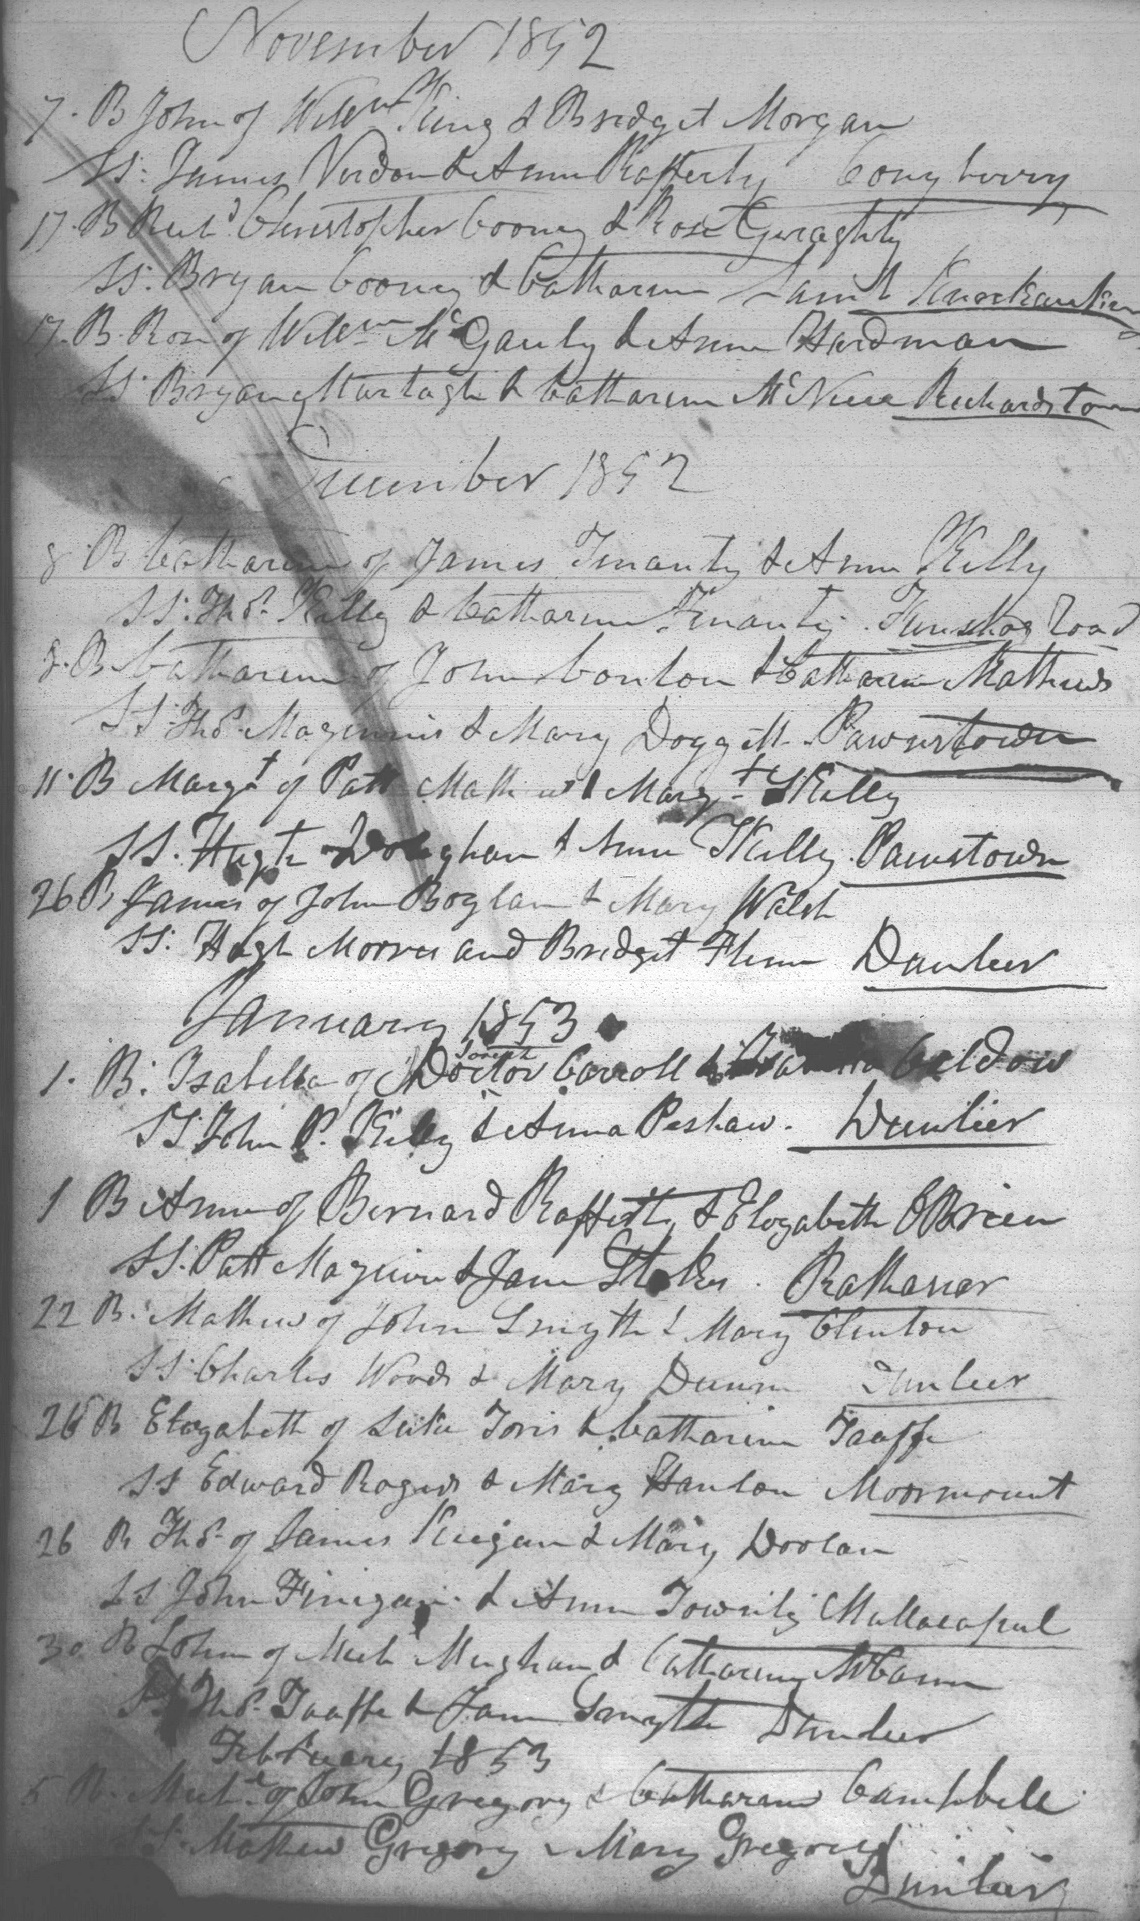 November 1852
7. B John of Willm King & Bridget Morgan
SS: James Verdon & Anne Rafferty Conyberry
17. B Richd Christopher Cooney & Rose Geraghty
SS: Bryan Cooney & Catharine
17. B. Rose of Willm McGauly & Anne Hardman
SS: Bryan Murtagh & Catharine McNeice Richardstown
December 1852
8 B Catharine of James Tenanty & Anne Kelly
SS: Thos. Kelly & Catharine Tenanty. Funshog Road
8. B Catharine of John Conlon & Catharine Mathews
SS: Thos. Maginnis & Mary Doggett. Pawnstown
11. B Margt of Patt Mathews & Margt Kelly
SS. Hugh & Anne Kelly. Pawnstown
26 B James of John Boylan & Mary Walsh
SS. Hugh Moores and Bridget Flinn Dunleer
January 1853
1. B: Isabella of Joseph Doctor Carroll & Caldow
SS John P. Kelly & Anna Peshaw. Dunleer
1 B Anne of Bernard Rafferty & Elizabeth OBrien
SS. Patt Maguire & Jane Stokes. Rathaner
22 B. Mathew of John Smyth & Mary Clinton
SS Charles Woods & Mary Dunn Dunleer
26 B Elizabeth of Luke Toris & Catharine Taaffe
SS Edward Rogers & Mary Hanlon Moormount
26 B Thos. of James Keegan & Mary Doolan
SS John Finigan & Anne Townly Mullacapul
30 B John of Mich Meighan & Catharine McCann
SS Thos. Taaffe & Jane Smyth Dunleer
February 1853
5 B. Michl of John Gregory & Catharine Campbell
SS. Mathew Gregory & Mary Gregory
Dunleer